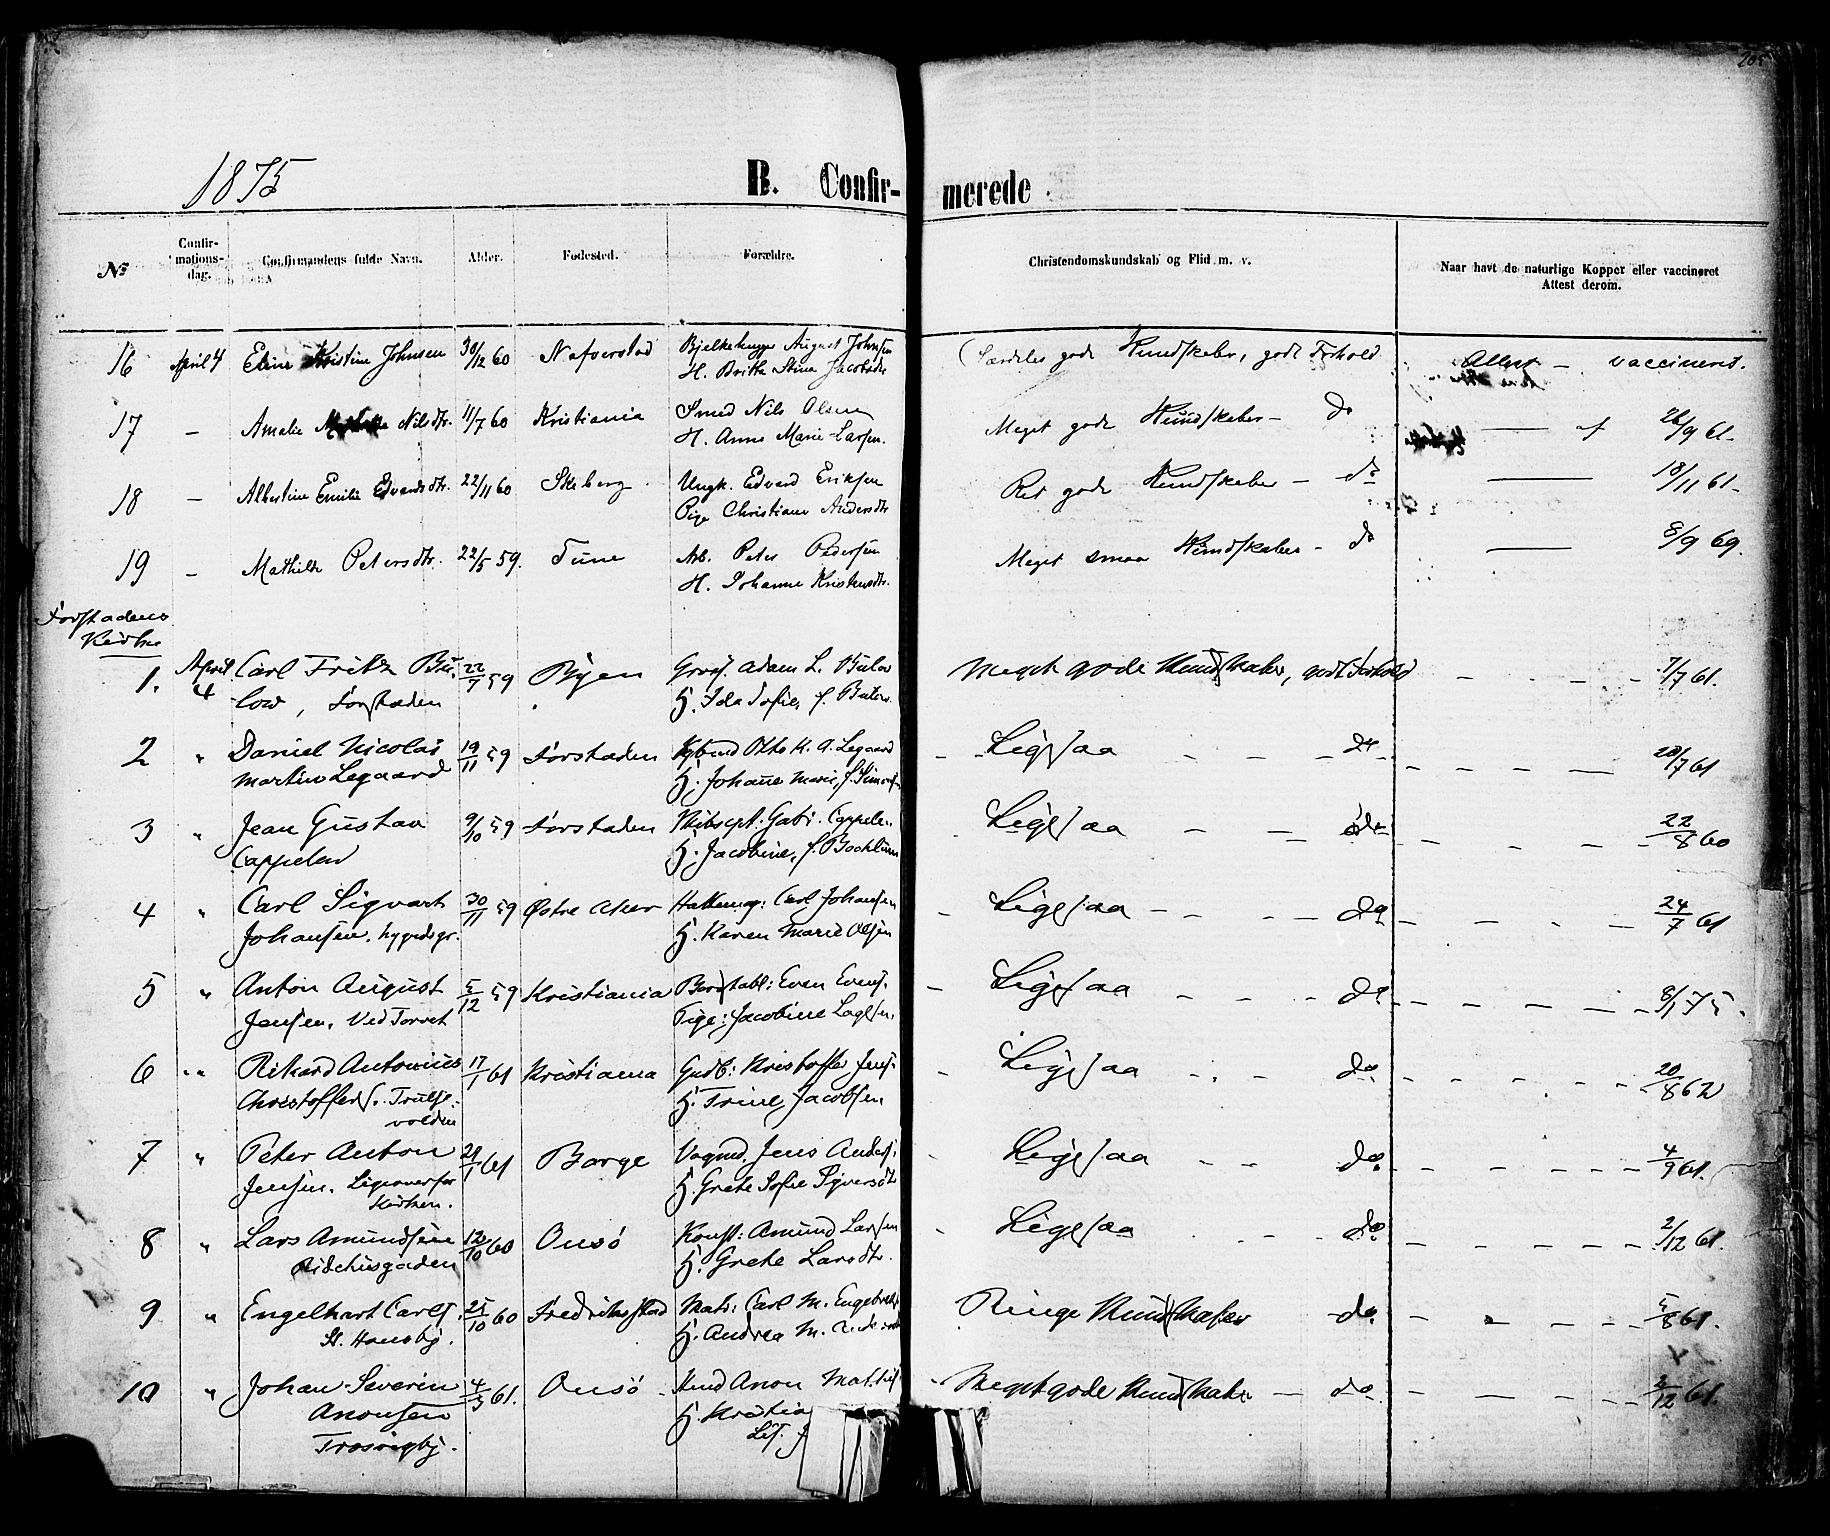 205
1875
B. Confir- merede
No
Confir-
mations-
dag.
Confirmandens fulde Navn.
Alder.
Fødested.
Forældre.
Christendomskundskab og Flid m. v.
Naar havt de naturlige Kopper eller vaccineret
Attest derom.
16 April 4 Eline Kristine Johnsen 30/12 60 Nafverstad Bjelkehugger August Johnsen Særdeles gode Kundskaber, godt Forhold Attest - vaccineret.
H. Britta Stina Jacobsdtr
17 - Amalie Nilsdtr. 11/7 60 Kristiania Smed Nils Olsen Meget gode Kundskaber - do 26/9 61-
H. Anne Marie Larsen.
18 - Albertine Emilie Edvardsdtr. 22/11 60 Skeberg Ungk. Edvard Eriksen Ret gode Kundskaber - do 18/11 61-
Pige Christiane Andersdtr
19 - Mathilde Petersdtr. 22/5 59. Tune Arb. Peter Pedersen Meget smaa Kundskaber - do 8/9 69.
H. Johanne Kristensdtr.
Forstadens
Kirke
1. April 4 Carl Fritz Bü- 22/7 59 Byen Gross. Adam L. Bülow Meget gode Kundskaber, godt Forhold 7/7 61.
low, Forstaden H. Ida Sofie, f.
2 " Daniel Nicolai 19/11 59 Forstaden Otto K. A. Legaard Ligesaa do 20/7 61
Martin Legaard H. Johanne Marie, f.
3 " Jean Gustav 9/10 59 Forstaden Skibscpt. Gabr. Cappelen Ligesaa do 22/8 60
Cappelen H. Jacobine, f.
4 " Carl Sigvart 30/11 59 Østre Aker Hattemag: Carl Johansen Ligesaa do 24/7 61
Johansen, H. Karen Marie Olsen
5 " Anton August 5/12 59 Kristiania Even Evens. Ligesaa do 8/1 75.
Jensen, Ved Torvet Pige: Jacobine
6 " Rikard Antonius 17/1 61 Kristiania Guldb: Kristoffer Jens. Ligesaa do 20/8 62
Christoffers. Trulse- H. Trine Jacobsen
volden
7 " Peter Anton 21/1 61 Borge Vognmd. Jens Anders. Ligesaa do 4/9 61.
Jensen. Ligeoverfor H. Grete Sofie Syversdtr
Kirken.
8 " Lars Amundsen 12/10 60 Onsö Konst: Amund Larsen Ligesaa do 2/12 61.
Ridehusgaden H. Grete Larsdtr.
9 " Engelhart Carls. 25/10 60 Fredrikstad Matr: Carl M. Engebrets. Ringe Kundskaber do 5/8 61.
St. Hansbj. H. Andrea M.
10 " Johan Severin 4/3 61. Onsö Knud Anon Mathis. Meget gode Kundskaber - do 2/12 61.
Anonsen H. Kristia
Trosvigbj.